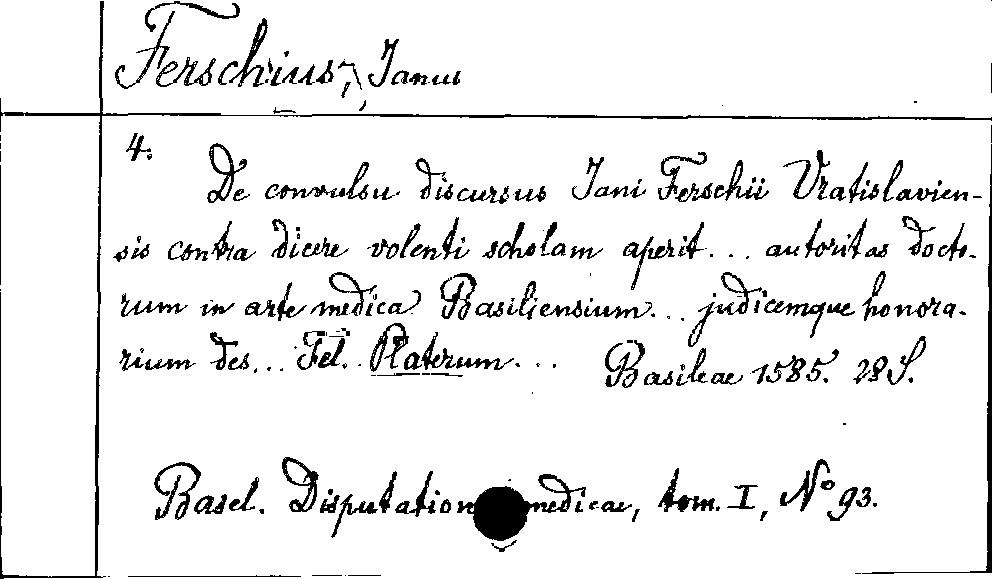 Ferschius, Janus
4.
De convulsu discursus Jani Ferschii Vratislavien-
sis contra dicere volenti scholam aperit... autoritas docto-
rum in arte medica Basiliensium... judicemque honora-
rium des... Fel. Platerum...
Basileae 1585. 28 S.
Basel. Disputation medicae, tom. I, No 93.